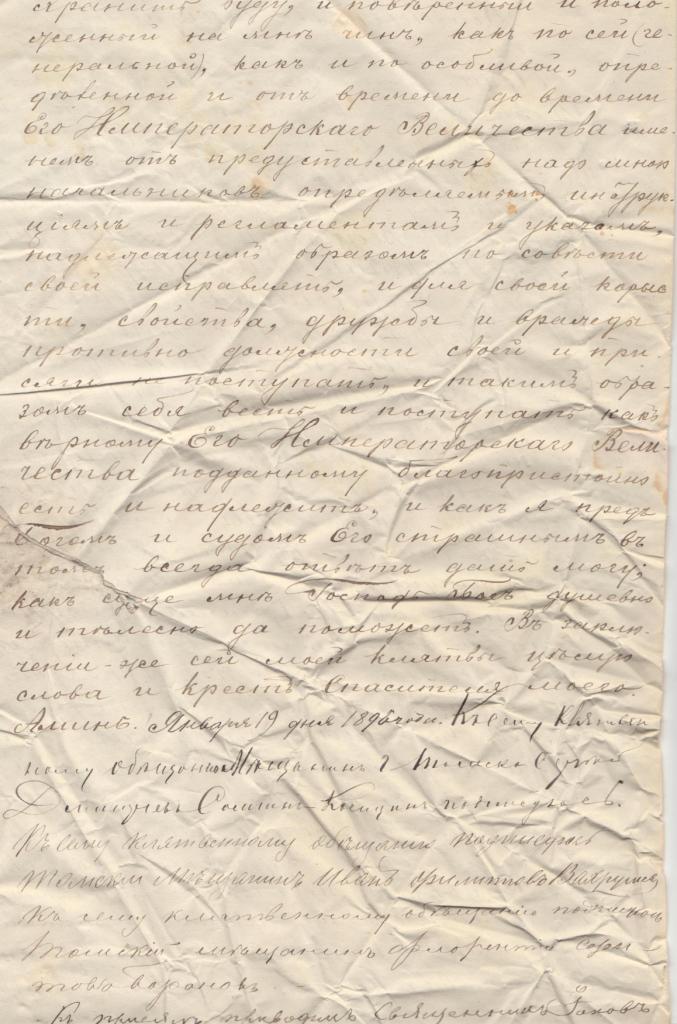 хранить буду, и поверенный и поло-
женный на мнѣ чинъ, какъ по сей (ге-
неральной), какъ и по особливой, опре-
дѣленной и отъ времени до времени
Его Императорскаго Величества име-
немъ отъ предуставленныхъ надо мною
начальниковъ опредѣляемымъ инструк-
ціямъ и регламентамъ и указамъ,
надлежащимъ образомъ по совѣсти
своей исправлять, и для своей корыс
ти, свойства, дружбы и вражды
противно должности своей и при-
сяги не поступать, и такимъ обра-
зомъ себя весть и поступать какъ
вѣрному Его Императорскаго Вели-
чества подданному благопристойно
есть и надлежитъ, и какъ я предъ
Богомъ и судомъ Его страшнымъ въ
томъ всегда отвѣтъ дать могу;
какъ суще мнѣ Господь Богъ душевно
и тѣлесно да поможетъ. Въ заклю-
ченіи-же сей моей клятвы цѣлую
слова и крестъ Спасителя моего.
Аминь. Января 19 дня 1896 года. Къ сему Клятвен
ному обѣщанію Мѣщанинъ г Томска Сергей
Дмитріевъ подписуюсь.
Къ сему клятвенному обѣщанію подписуюсь
Томский мѣщанинъ Иванъ Филиппово Вахрушев
Къ сему клятвенному обѣщанію подписуюсь
Томскій мѣщанинъ Флорентій
тово Вороновъ
Къ присягѣ приводилъ Священникъ Іаковъ